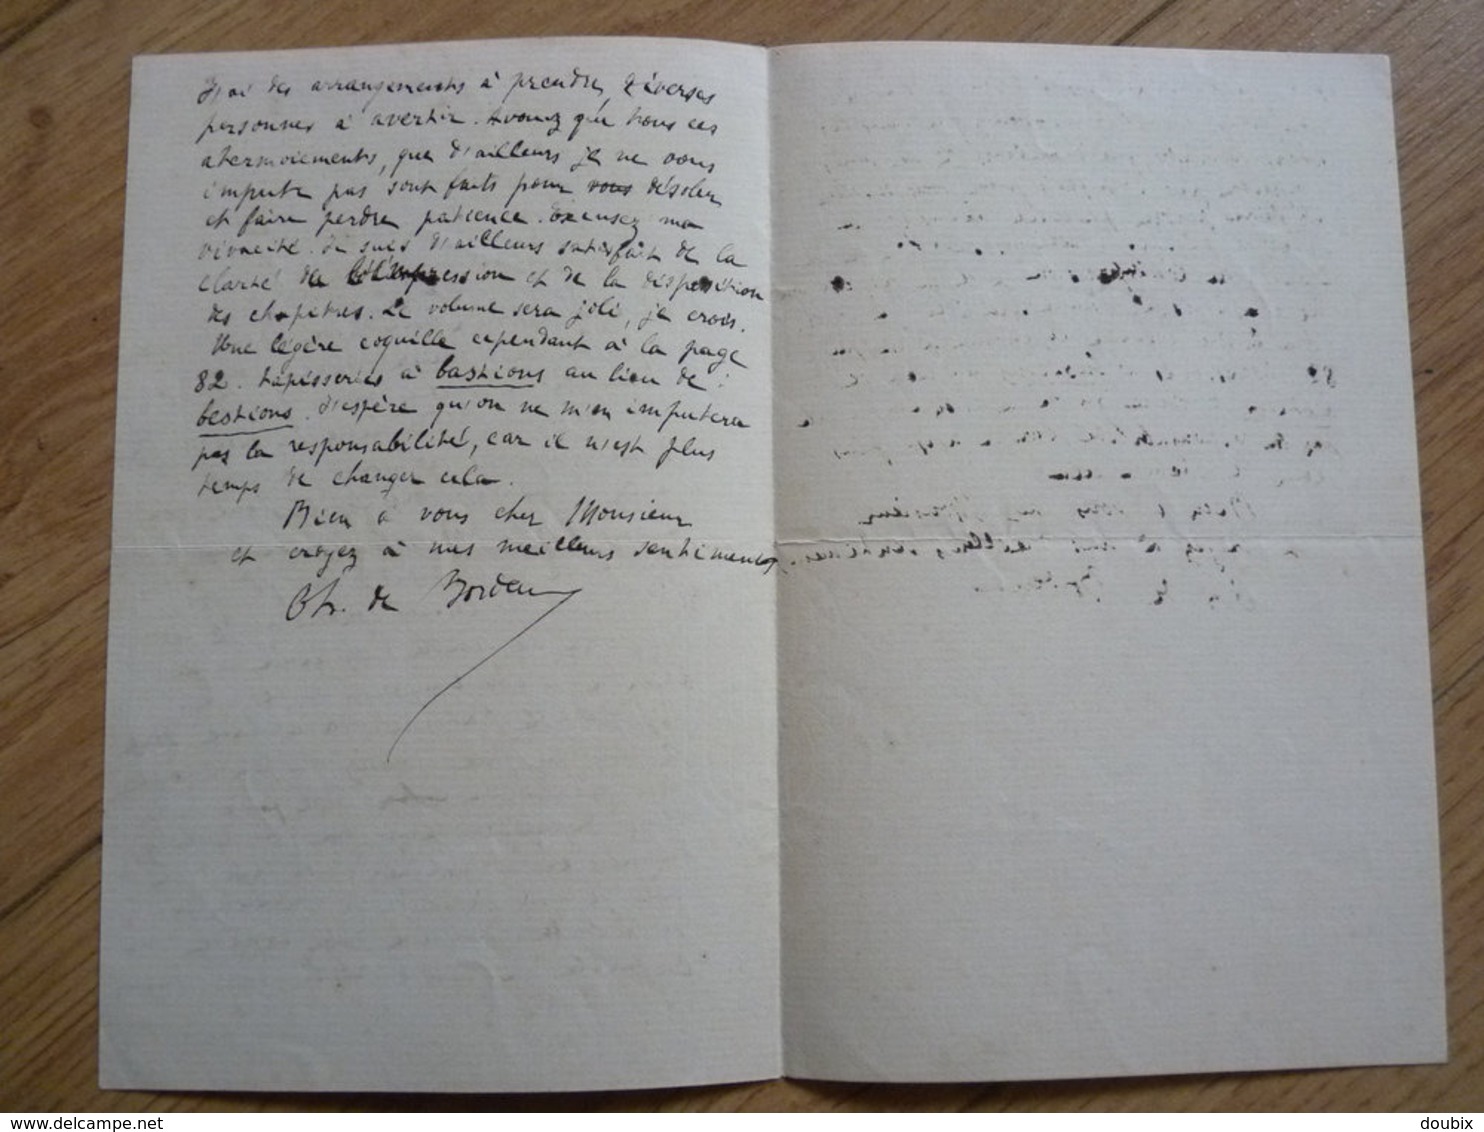 J'ai des arrangements à prendre, diverses
personnes à avertir. Avouez que tous ces
atermoiements, que d'ailleurs je ne vous
impute pas sont faits pour vous désoler
et faire perdre patience. Excusez ma
vivacité. Je suis d'ailleurs satisfait de la
clarté de l'impression et de la disposition
des chapitres. Le volume sera joli, je crois.
Une légère coquille cependant à la page
82. tapisseries à bastions au lieu de :
bestions. J'espère qu'on ne m'en imputera
pas la responsabilité, car il n'est plus
temps de changer cela.
Bien à vous cher Monsieur
et croyez à mes meilleurs sentiments
Ch. de Bordeu
delcampe.net
doubix